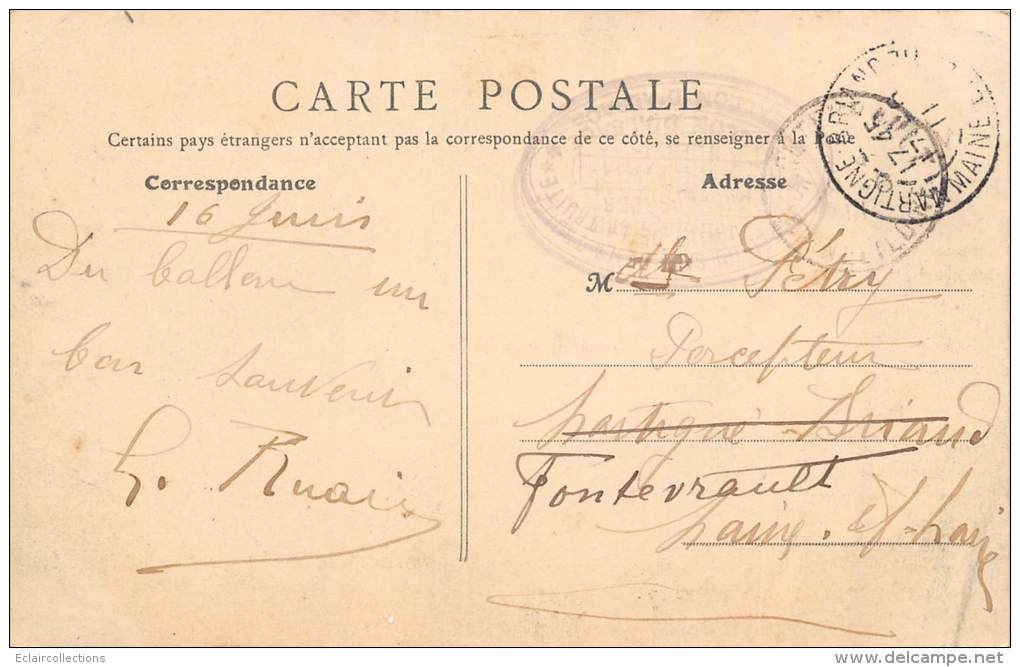 CARTE POSTALE
Certains pays étrangers n'acceptant pas la correspondance de ce côté, se renseigner à la Poste
Correspondance
16 Juin
Du ballon un
bon souvenir
Adresse
M
Pétry
Percepteur
Martigné-Briand
Fontevrault
Maine-et-Loire
MARTIGNE-BRIAND
MAINE
17
45
Eclaircollections
www.delcampe.net